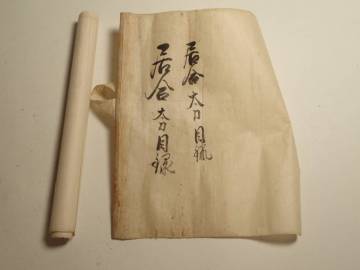 居合太刀目録
居合太刀目録